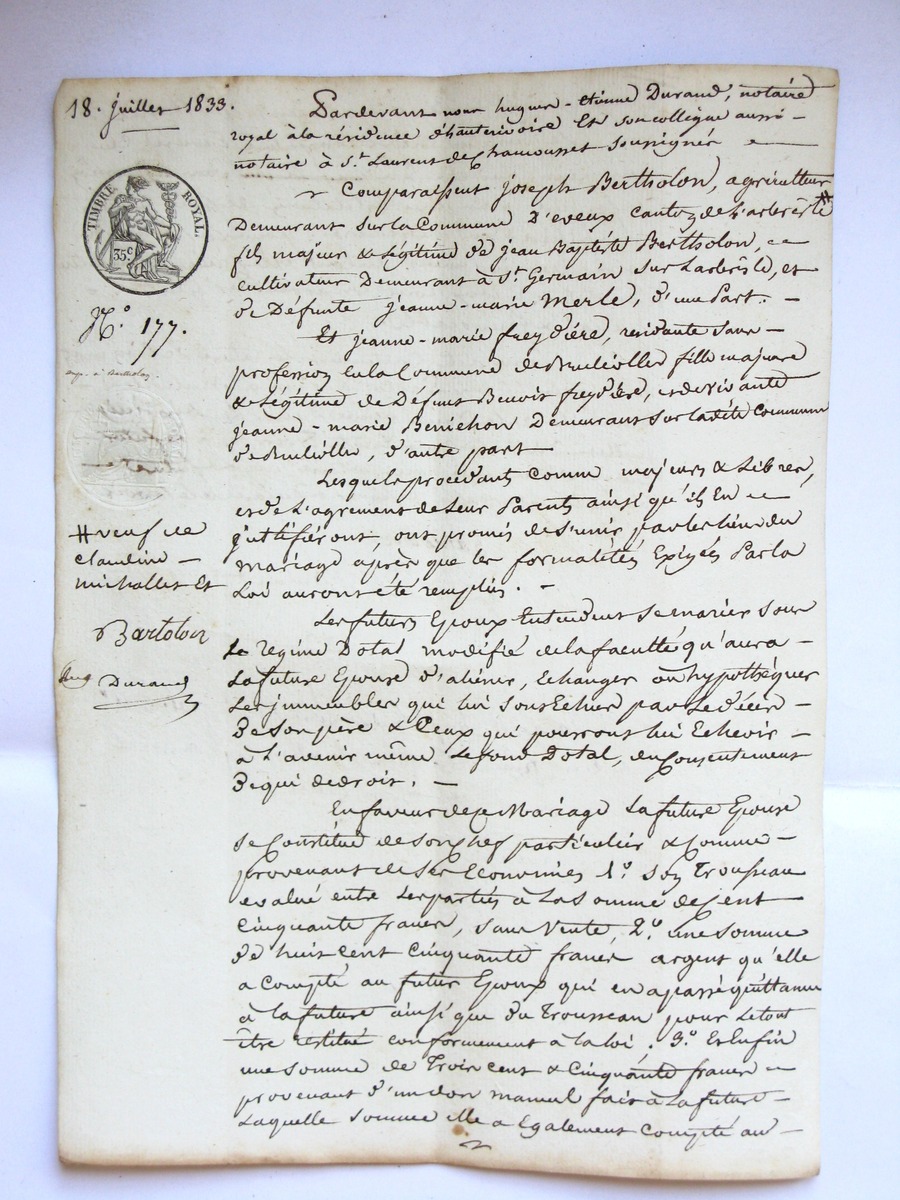 18. juillet 1833.
TIMBRE ROYAL.
35c
N.o 177.
exp. à Bertholon
# veuf de
Claudine -
Michallet Et
Bartolon
Durand
Pardevant nous hugues - Etienne Durand, notaire
royal à la résidence d'hauterivoire Et son collègue aussi
notaire à St. Laurent de Chamousset soussignés
Comparaissent joseph Bertholon, agriculteur
Demeurant sur la Commune D'eveux canton de l'arbresle #
fils majeur & légitime de jean Baptiste Bertholon,
cultivateur Demeurant à St. Germain sur Larbresle, et
de Défunte jeanne-marie Merle, d'une Part. -
Et jeanne-marie freydière, residante sans -
profession en la Commune de Brulliolles fille majeure
& légitime de Défunt Benoit freydière, et de vivante
jeanne - marie Benichon Demeurant sur ladite Commune
de Brulliolles, d'autre part
Lesquels procédant comme majeurs & Libres,
et de L'agrement de leur Parents ainsi qu'ils En
justifiéront, ont promis de s'unir par les liens du
mariage après que les formalités Exigées Par la
Loi auront été remplies. -
Les futurs Epoux Entendent se marier sous
Le regime Dotal modifié de la faculté qu'aura -
La future Epouse d'aliéner, Echanger ou hypothéquer
Les immeubles qui lui sont Echus par le décès -
De son père & Ceux qui pourront lui Echeoir -
à l'avenir même le fond Dotal, du Consentement
De qui de droit. -
En faveur de ce Mariage La future Epouse
se Constitue de son chef particulier & Comme -
provenant de ses Economies 1.o son Trousseau
evalué entre Les parties à La somme de Cent
Cinquante francs, sans Vente, 2.o une somme
De huit cent Cinquante francs argent qu'elle
a Compté au futur Epoux qui en a passé quittance
à la future ainsi que du Trousseau pour Le tout
être restitué conformement à la loi; 3.o Et Enfin
une somme de Trois cent & Cinquante francs
provenant d'un don manuel fait à La future -
Laquelle somme elle a Egalement Compté au -